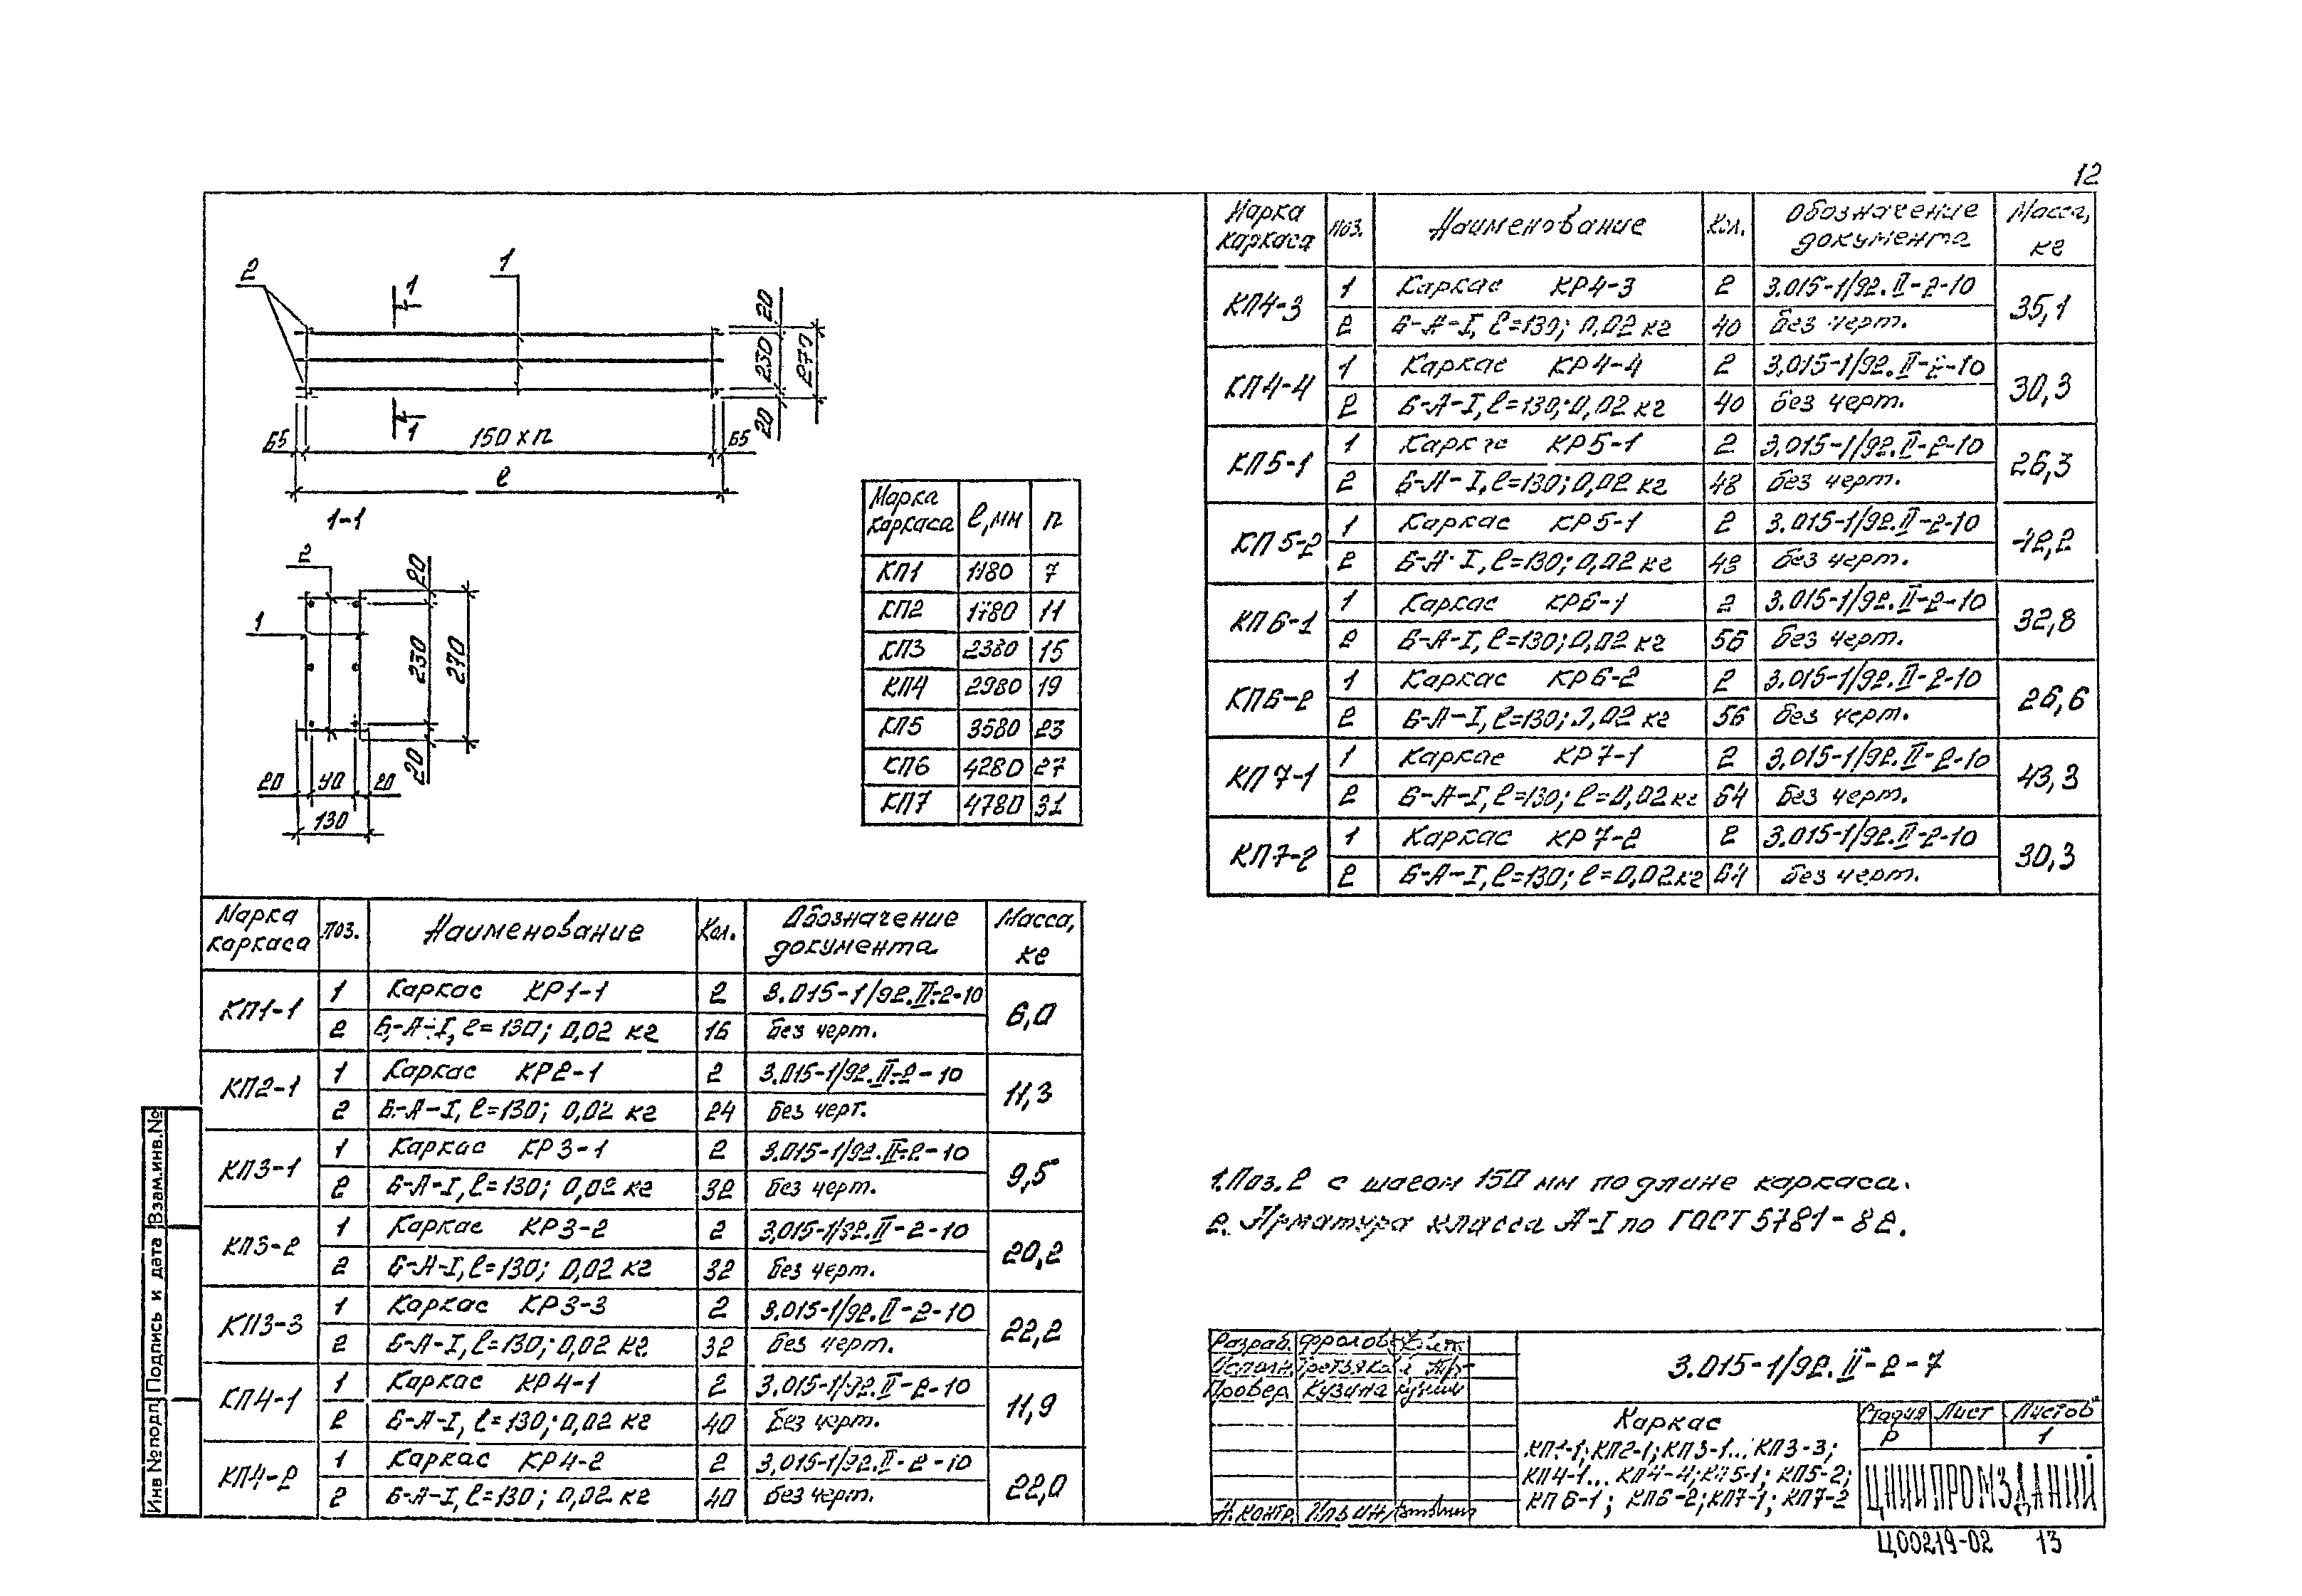 12
2
1
1
20
230
270
20
1
65
150 x n
65
ℓ
1-1
2
1
20
230
270
20
20
90
20
130
Марка каркаса ℓ, мм n
КП1 1180 7
КП2 1780 11
КП3 2380 15
КП4 2980 19
КП5 3580 23
КП6 4280 27
КП7 4780 31
Марка каркаса Поз. Наименование Кол. Обозначение документа Масса, кг
КП1-1 1 Каркас КР1-1 2 3.015-1/92.II-2-10 6,0
2 Б-А-I, ℓ=130; 0,02 кг 16 Без черт.
КП2-1 1 Каркас КР2-1 2 3.015-1/92.II-2-10 11,3
2 Б-А-I, ℓ=130; 0,02 кг 24 Без черт.
КП3-1 1 Каркас КР3-1 2 3.015-1/92.II-2-10 9,5
2 Б-А-I, ℓ=130; 0,02 кг 32 Без черт.
КП3-2 1 Каркас КР3-2 2 3.015-1/92.II-2-10 20,2
2 Б-А-I, ℓ=130; 0,02 кг 32 Без черт.
КП3-3 1 Каркас КР3-3 2 3.015-1/92.II-2-10 22,2
2 Б-А-I, ℓ=130; 0,02 кг 32 Без черт.
КП4-1 1 Каркас КР4-1 2 3.015-1/92.II-2-10 11,9
2 Б-А-I, ℓ=130; 0,02 кг 40 Без черт.
КП4-2 1 Каркас КР4-2 2 3.015-1/92.II-2-10 22,0
2 Б-А-I, ℓ=130; 0,02 кг 40 Без черт.
Марка каркаса Поз. Наименование Кол. Обозначение документа Масса, кг
КП4-3 1 Каркас КР4-3 2 3.015-1/92.II-2-10 35,1
2 Б-А-I, ℓ=130; 0,02 кг 40 Без черт.
КП4-4 1 Каркас КР4-4 2 3.015-1/92.II-2-10 30,3
2 Б-А-I, ℓ=130; 0,02 кг 40 Без черт.
КП5-1 1 Каркас КР5-1 2 3.015-1/92.II-2-10 26,3
2 Б-А-I, ℓ=130; 0,02 кг 48 Без черт.
КП5-2 1 Каркас КР5-1 2 3.015-1/92.II-2-10 42,2
2 Б-А-I, ℓ=130; 0,02 кг 48 Без черт.
КП6-1 1 Каркас КР6-1 2 3.015-1/92.II-2-10 32,8
2 Б-А-I, ℓ=130; 0,02 кг 56 Без черт.
КП6-2 1 Каркас КР6-2 2 3.015-1/92.II-2-10 26,6
2 Б-А-I, ℓ=130; 0,02 кг 56 Без черт.
КП7-1 1 Каркас КР7-1 2 3.015-1/92.II-2-10 43,3
2 Б-А-I, ℓ=130; ℓ=0,02 кг 64 Без черт.
КП7-2 1 Каркас КР7-2 2 3.015-1/92.II-2-10 30,3
2 Б-А-I, ℓ=130; ℓ=0,02 кг 64 Без черт.
1. Поз. 2 с шагом 150 мм по длине каркаса.
2. Арматура класса А-I по ГОСТ 5781-82.
Инв № подп Подпись и дата Взам.инв.№
Разраб. Фролов
Исполн.
Провер. Кузина
Н. контр.
3.015-1/92.II-2-7
Каркас
КП1-1; КП2-1; КП3-1... КП3-3;
КП4-1... КП4-4; КП5-1; КП5-2;
КП6-1; КП6-2; КП7-1; КП7-2
Стадия Лист Листов
Р 1
ЦНИИПРОМЗДАНИЙ
Ц00219-02 13